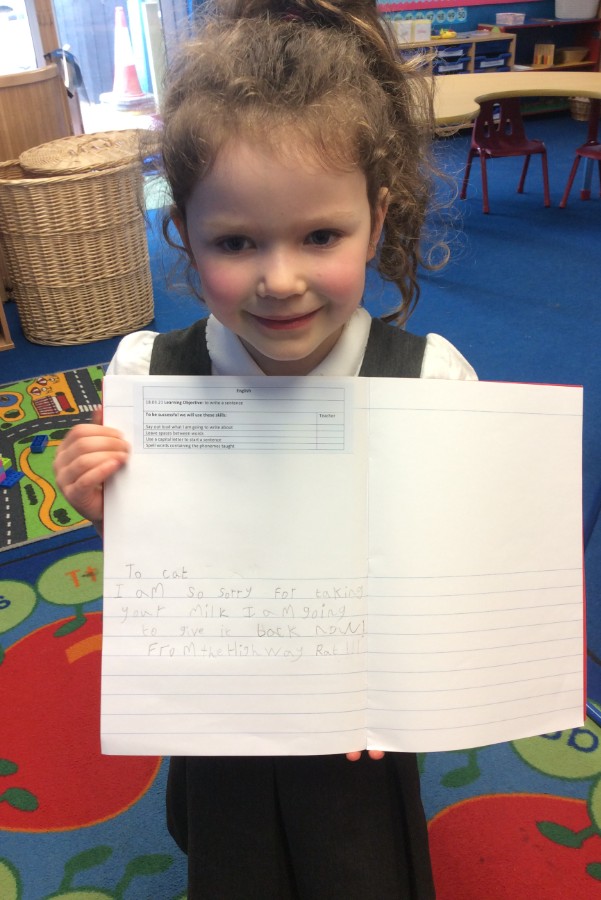 English
Learning Objective: to write a sentence
To be successful we will use these skills: Teacher
Say out loud what I am going to write about
Leave spaces between words
Use a capital letter to start a sentence
Spell words containing the phonemes taught
To cat
I aM so sorry For taking
your Milk I aM going
to give it back now!
FroM the High way Rat !!!